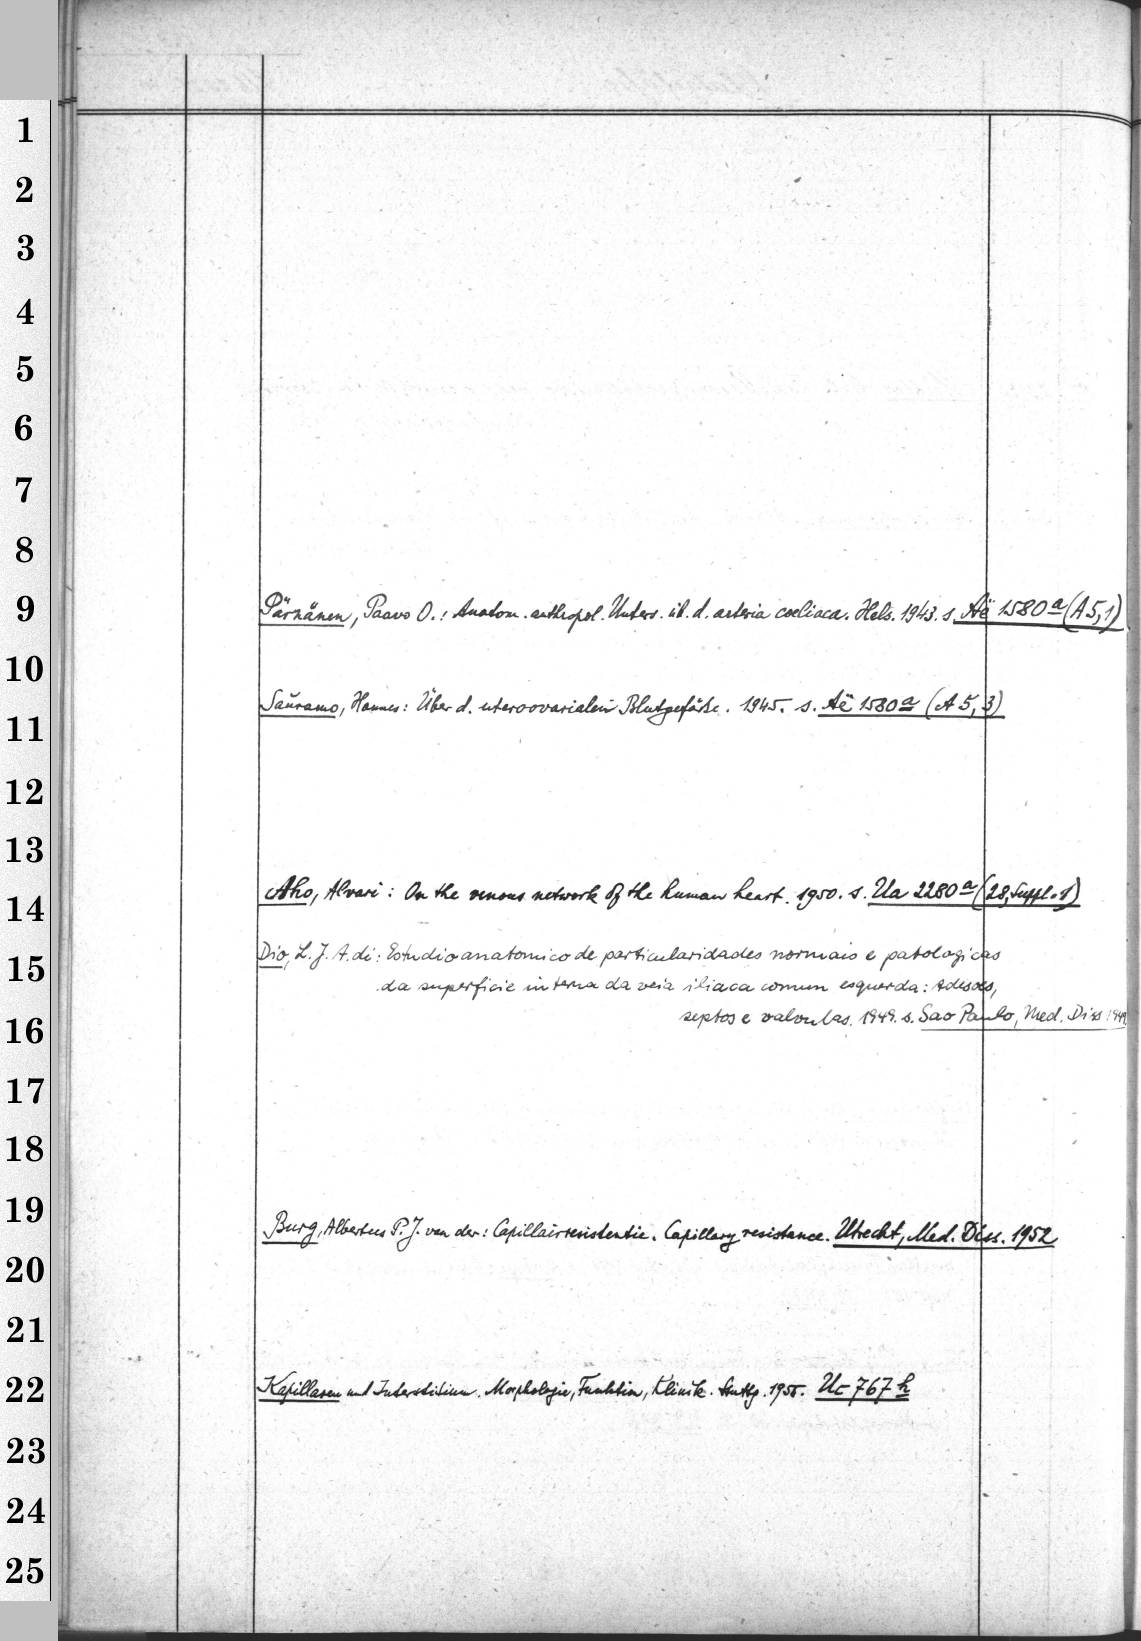 1
2
3
4
5
6
7
8
9
Pärnänen, Paavo O.: Anatom. anthropol. Unters. üb. d. arteria coeliaca. Hels. 1943. s. Aë 1580a (A5,1)
10
Sauramo, Hannes: Über d. uteroovarialen Blutgefäße. 1945. s. Aë 1580a (A 5, 3)
11
12
13
Aho, Alvari: On the venous network of the human heart. 1950. s. Ua 2280a (28, Suppl. 1)
14
Dio, L. J. A. di: Estudio anatomico de particularidades normais e patologicas
15
da superficie interna da veia iliaca comum esquerda: Adesoes,
septos e valvulas. 1949. s. Sao Paulo, Med. Diss 1949
16
17
18
19
Burg, Albertus P. J. van der: Capillairresistentie. Capillary resistance. Utrecht, Med. Diss. 1952
20
21
Kapillaren und Interstitium. Morphologie, Funktion, Klinik. Stuttg. 1955. Uc 767 h
22
23
24
25